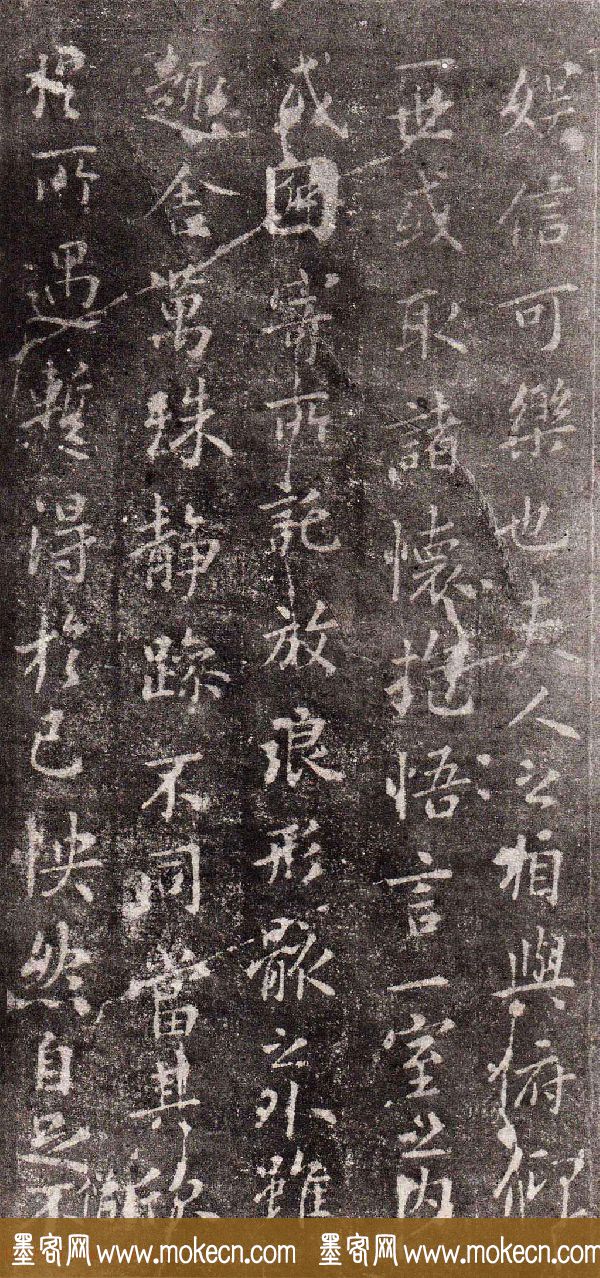 娛信可樂也夫人之相與俯仰
一世或取諸懷抱悟言一室之内
或因寄所託放浪形骸之外雖
趣舍萬殊静躁不同當其欣
於所遇暫得於己怏然自足不
墨客网 www.mokecn.com 墨客网 www.mokecn.com